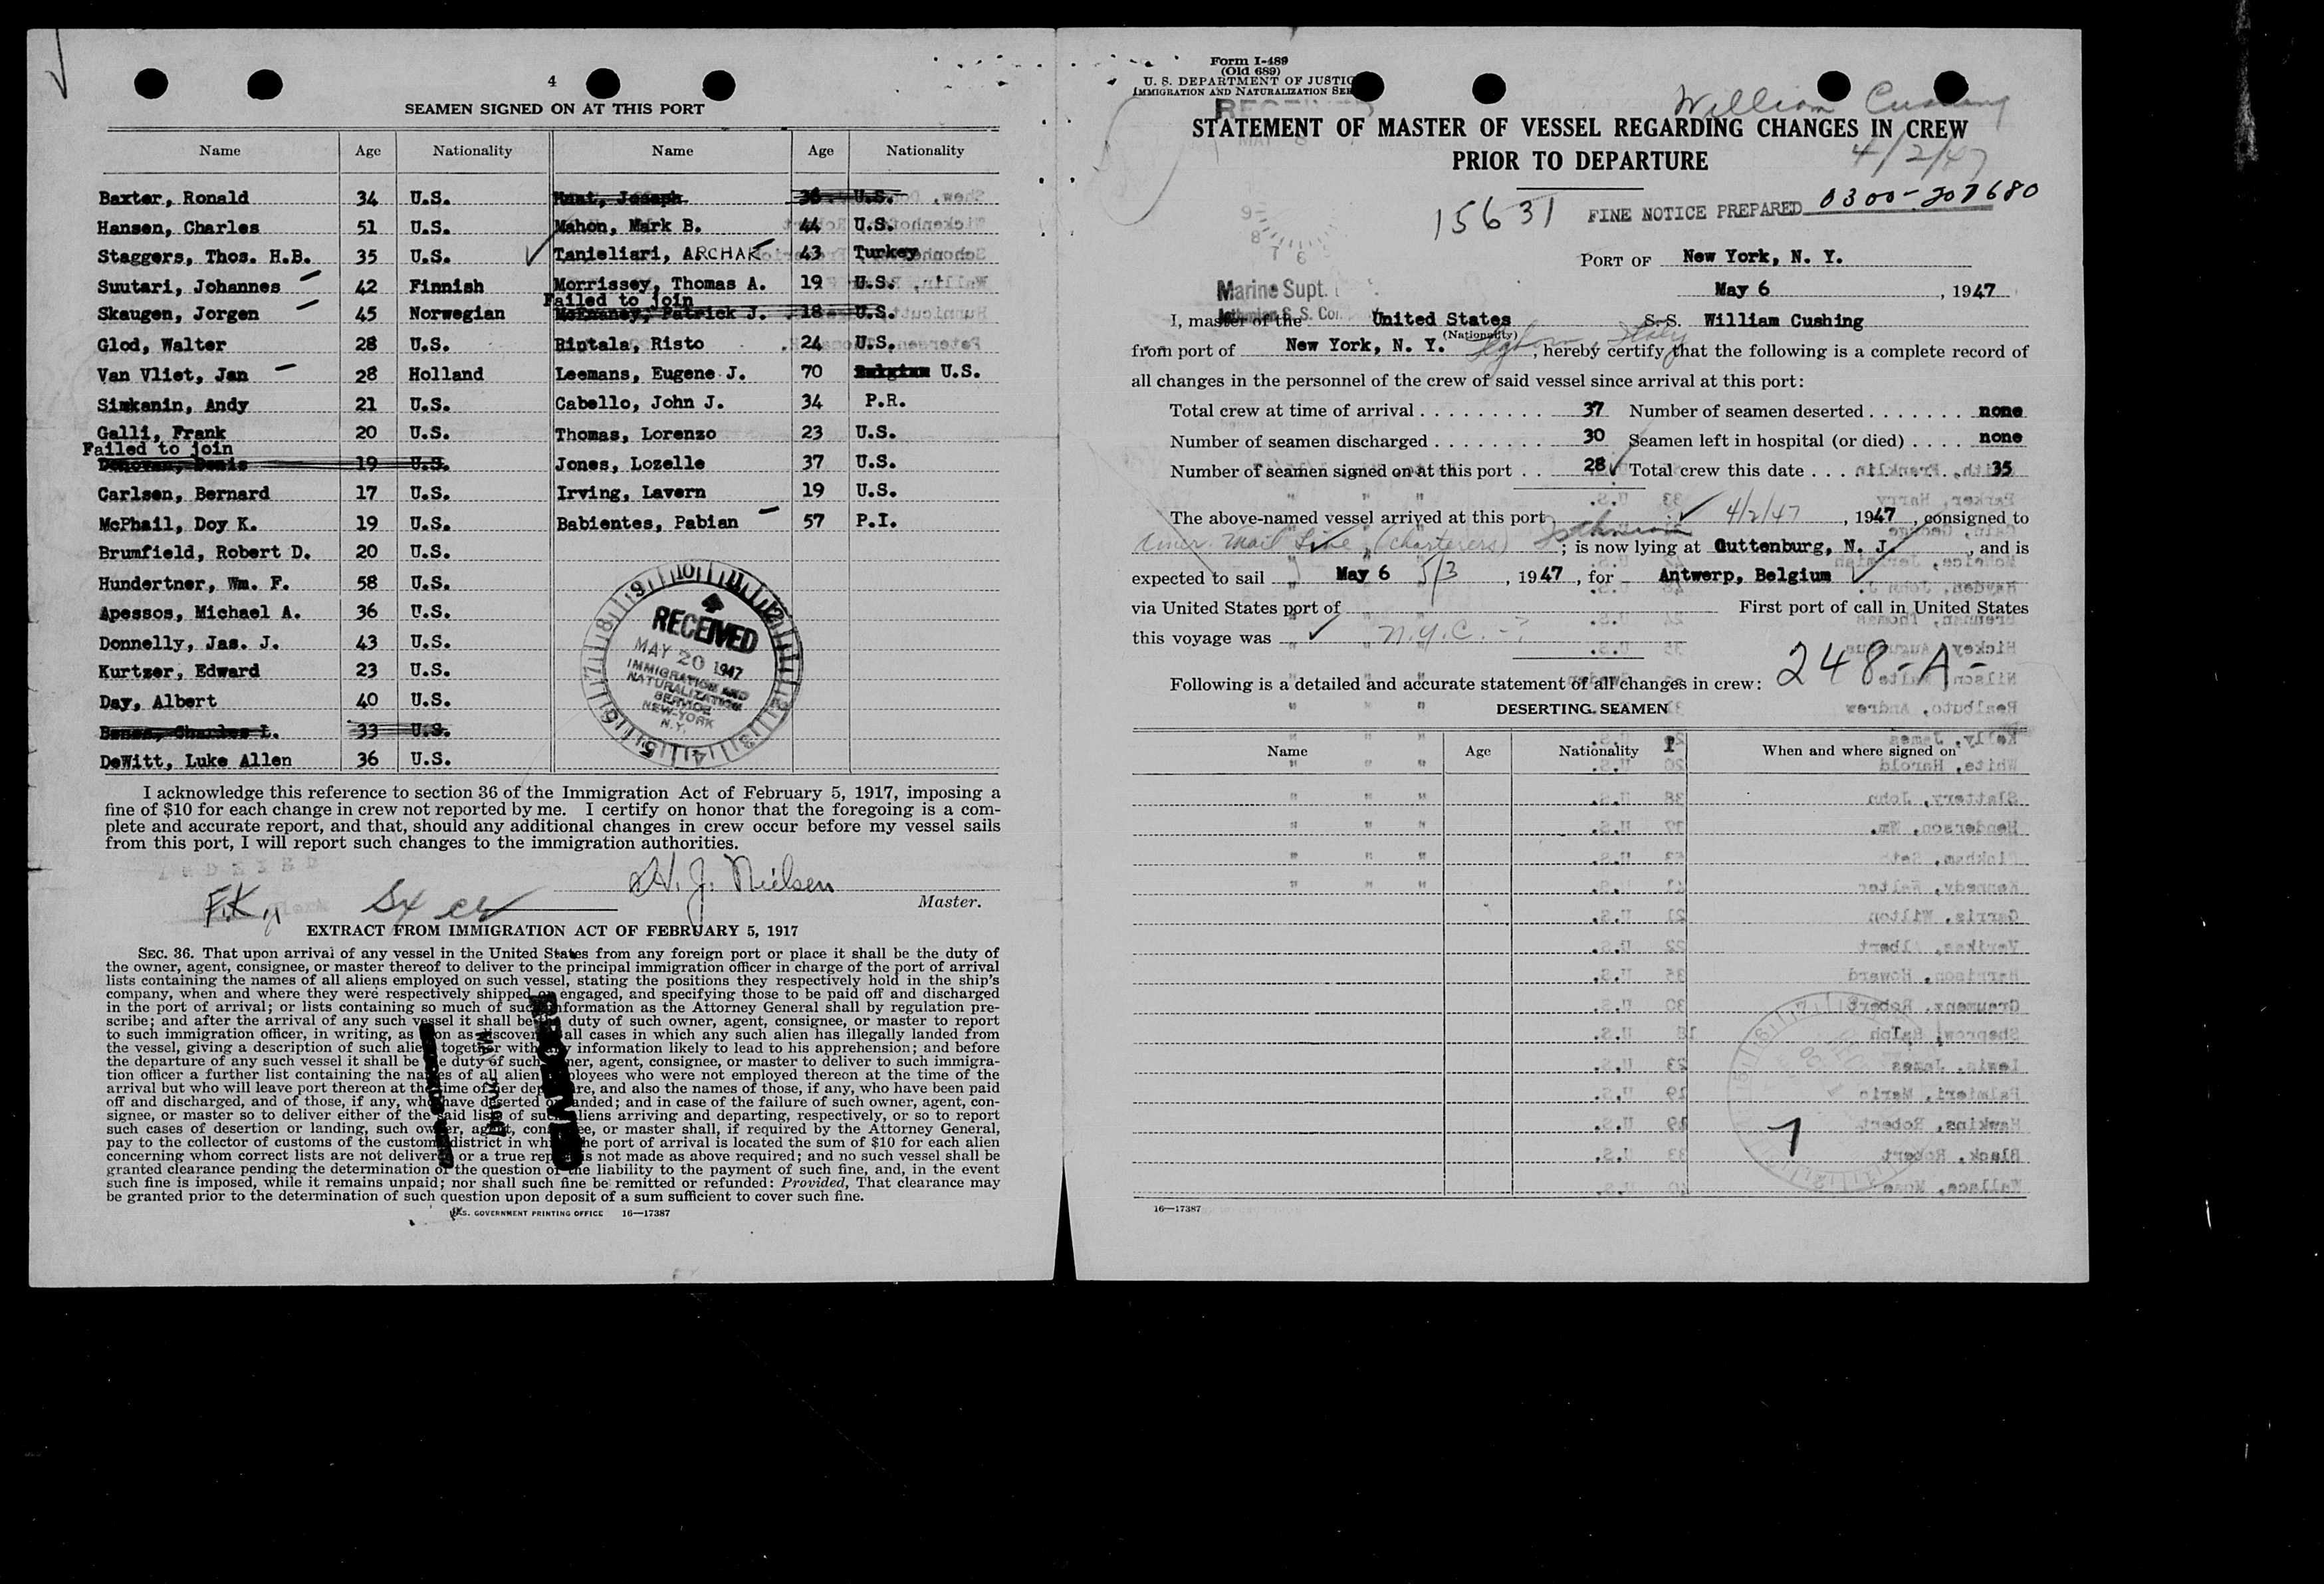 4
SEAMEN SIGNED ON AT THIS PORT
Name Age Nationality Name Age Nationality
Baxter, Ronald 34 U.S. Hunt, Joseph 36 U.S.
Hansen, Charles 51 U.S. Mahon, Mark B. 44 U.S.
Staggers, Thos. H.B. 35 U.S. Tanieliari, ARCHAK 43 Turkey
Suutari, Johannes 42 Finnish Morrissey, Thomas A. 19 U.S.
Failed to join
Skaugen, Jorgen 45 Norwegian McEnaney, Patrick J. 18 U.S.
Glod, Walter 28 U.S. Rintala, Risto 24 U.S.
Van Vliet, Jan 28 Holland Leemans, Eugene J. 70 Belgian U.S.
Simkanin, Andy 21 U.S. Cabello, John J. 34 P.R.
Galli, Frank 20 U.S. Thomas, Lorenzo 23 U.S.
Failed to join
Donovan, Denis 19 U.S. Jones, Lozelle 37 U.S.
Carlsen, Bernard 17 U.S. Irving, Lavern 19 U.S.
McPhail, Doy K. 19 U.S. Babientes, Pabian 57 P.I.
Brumfield, Robert D. 20 U.S.
Hundertner, Wm. F. 58 U.S.
Apessos, Michael A. 36 U.S.
Donnelly, Jas. J. 43 U.S.
Kurtzer, Edward 23 U.S.
Day, Albert 40 U.S.
Charles L. 33 U.S.
DeWitt, Luke Allen 36 U.S.
RECEIVED
MAY 20 1947
IMMIGRATION AND
NATURALIZATION
SERVICE
NEW-YORK
N.Y.
I acknowledge this reference to section 36 of the Immigration Act of February 5, 1917, imposing a
fine of $10 for each change in crew not reported by me. I certify on honor that the foregoing is a com-
plete and accurate report, and that, should any additional changes in crew occur before my vessel sails
from this port, I will report such changes to the immigration authorities.
H. J. Nielsen
Master.
F.K.
EXTRACT FROM IMMIGRATION ACT OF FEBRUARY 5, 1917
SEC. 36. That upon arrival of any vessel in the United States from any foreign port or place it shall be the duty of
the owner, agent, consignee, or master thereof to deliver to the principal immigration officer in charge of the port of arrival
lists containing the names of all aliens employed on such vessel, stating the positions they respectively hold in the ship's
company, when and where they were respectively shipped or engaged, and specifying those to be paid off and discharged
in the port of arrival; or lists containing so much of such information as the Attorney General shall by regulation pre-
scribe; and after the arrival of any such vessel it shall be the duty of such owner, agent, consignee, or master to report
to such immigration officer, in writing, as soon as discovered, all cases in which any such alien has illegally landed from
the vessel, giving a description of such alien, together with any information likely to lead to his apprehension; and before
the departure of any such vessel it shall be the duty of such owner, agent, consignee, or master to deliver to such immigra-
tion officer a further list containing the names of all alien employees who were not employed thereon at the time of the
arrival but who will leave port thereon at the time of her departure, and also the names of those, if any, who have been paid
off and discharged, and of those, if any, who have deserted or landed; and in case of the failure of such owner, agent, con-
signee, or master so to deliver either of the said lists of such aliens arriving and departing, respectively, or so to report
such cases of desertion or landing, such owner, agent, consignee, or master shall, if required by the Attorney General,
pay to the collector of customs of the customs district in which the port of arrival is located the sum of $10 for each alien
concerning whom correct lists are not delivered or a true report is not made as above required; and no such vessel shall be
granted clearance pending the determination of the question of the liability to the payment of such fine, and, in the event
such fine is imposed, while it remains unpaid; nor shall such fine be remitted or refunded: Provided, That clearance may
be granted prior to the determination of such question upon deposit of a sum sufficient to cover such fine.
U.S. GOVERNMENT PRINTING OFFICE 16—17387
Form I-489
(Old 689)
U. S. DEPARTMENT OF JUSTIC
IMMIGRATION AND NATURALIZATION SER
RECEIVED
William Cushing
STATEMENT OF MASTER OF VESSEL REGARDING CHANGES IN CREW
PRIOR TO DEPARTURE
4/2/47
15631 FINE NOTICE PREPARED 0300-207680
PORT OF New York, N. Y.
May 6, 1947
Marine Supt.
I, master of the United States S.S. William Cushing
(Nationality)
from port of New York, N. Y., hereby certify that the following is a complete record of
all changes in the personnel of the crew of said vessel since arrival at this port:
Total crew at time of arrival . . . . . . . . . . 37 Number of seamen deserted . . . . . . . none
Number of seamen discharged . . . . . . . . . 30 Seamen left in hospital (or died) . . . . none
Number of seamen signed on at this port . . 28 Total crew this date . . . 35
The above-named vessel arrived at this port 4/2/47, 1947, consigned to
Amer. Mail Line (charterers) Isthmian; is now lying at Guttenburg, N. J., and is
expected to sail May 6 5/3, 1947, for Antwerp, Belgium
via United States port of First port of call in United States
this voyage was N.Y.C. -?
Following is a detailed and accurate statement of all changes in crew: 248-A-
DESERTING SEAMEN
Name Age Nationality When and where signed on
1
16—17387